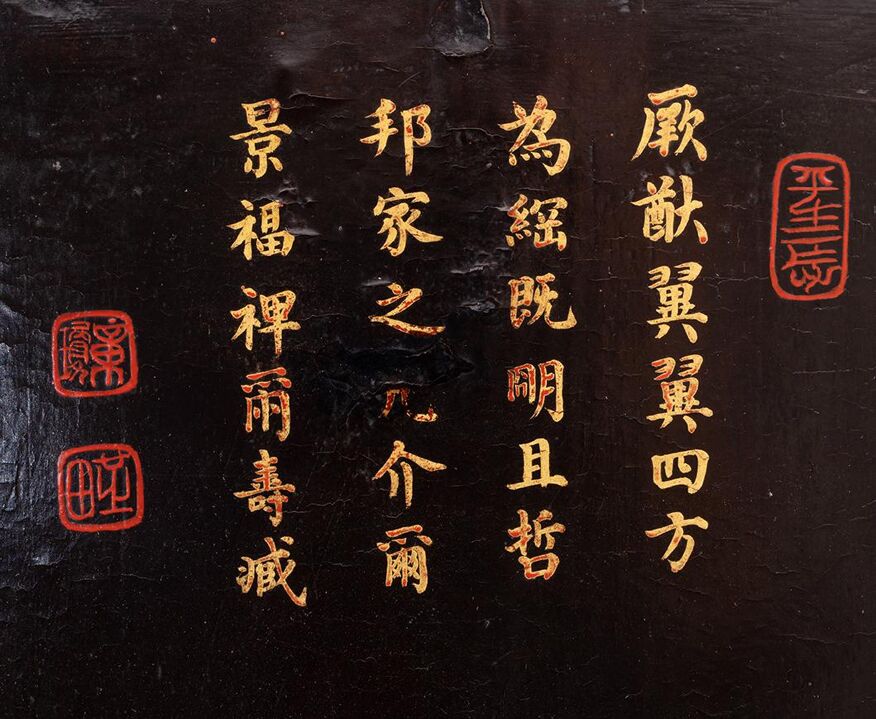 厥猷翼翼四方
為綱既明且哲
邦家之介爾
景福禆爾壽臧